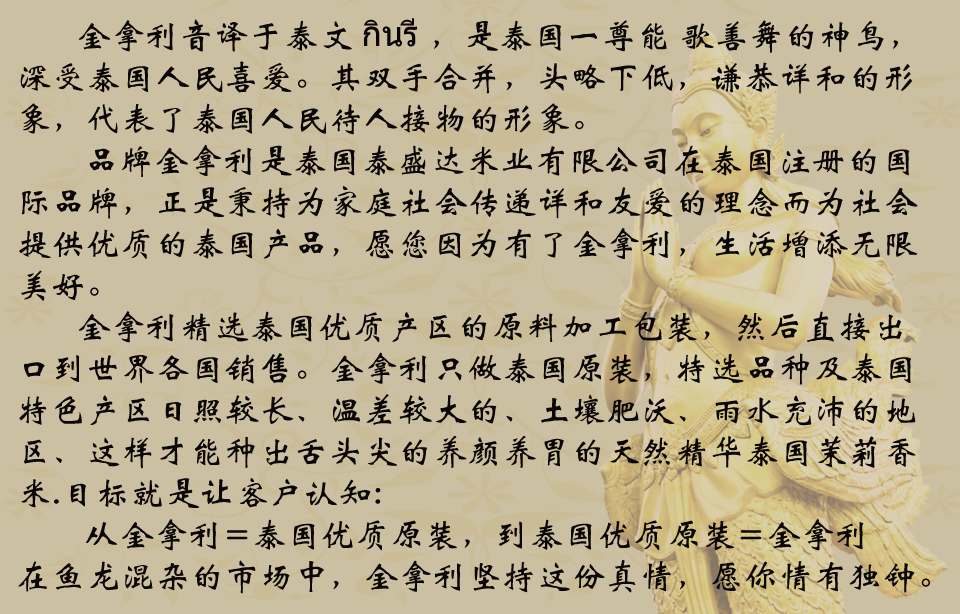 金拿利音译于泰文 กินรี ，是泰国一尊能 歌善舞的神鸟，
深受泰国人民喜爱。其双手合并，头略下低，谦恭详和的形
象，代表了泰国人民待人接物的形象。
品牌金拿利是泰国泰盛达米业有限公司在泰国注册的国
际品牌，正是秉持为家庭社会传递详和友爱的理念而为社会
提供优质的泰国产品，愿您因为有了金拿利，生活增添无限
美好。
金拿利精选泰国优质产区的原料加工包装，然后直接出
口到世界各国销售。金拿利只做泰国原装，特选品种及泰国
特色产区日照较长、温差较大的、土壤肥沃、雨水充沛的地
区、这样才能种出舌头尖的养颜养胃的天然精华泰国茉莉香
米.目标就是让客户认知:
从金拿利＝泰国优质原装，到泰国优质原装＝金拿利
在鱼龙混杂的市场中，金拿利坚持这份真情，愿你情有独钟。